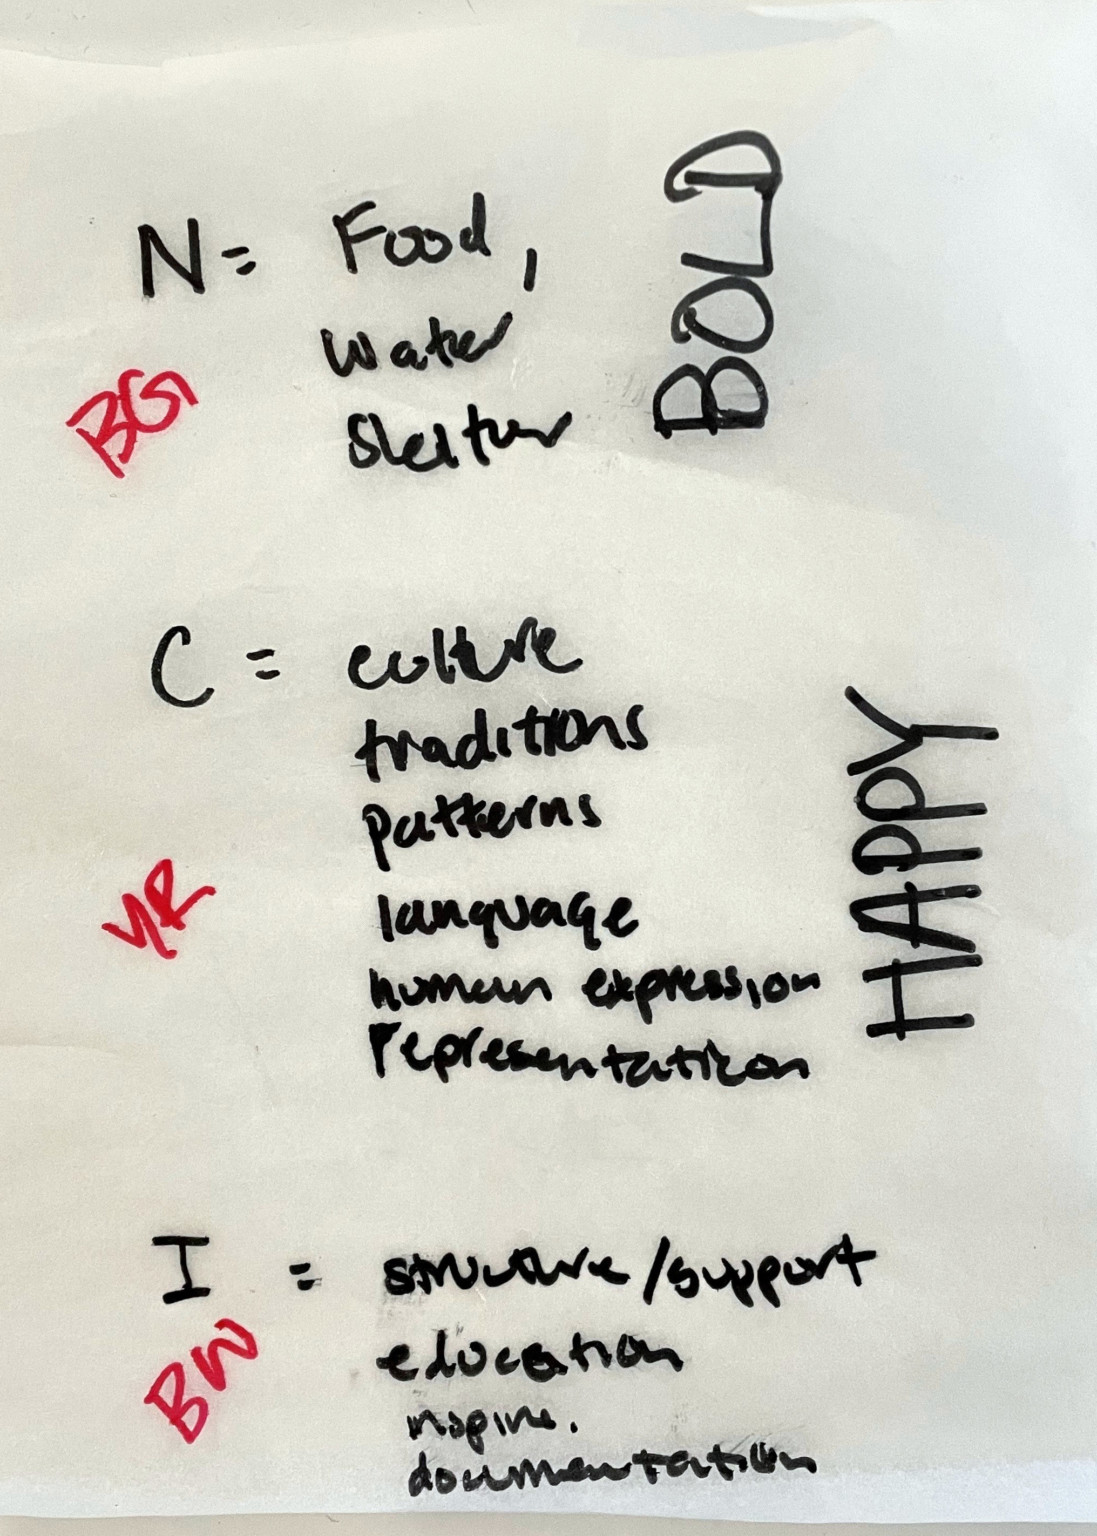 N = Food,
water
Shelter
BG
BOLD
C = culture
traditions
patterns
language
human expression
representation
YR
HAPPY
I = structure/support
education
inspire.
documentation
BW